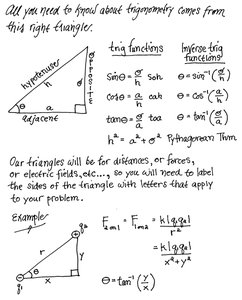 All you need to know about trigonometry comes from
this right triangle.
hypotenuse
h
opposite
o
θ
a
adjacent
trig functions
sinθ = o/h soh
cosθ = a/h cah
tanθ = o/a toa
h² = a² + o² Pythagorean Thm
Inverse trig
functions
θ = sin⁻¹(o/h)
θ = cos⁻¹(a/h)
θ = tan⁻¹(o/a)
Our triangles will be for distances, or forces,
or electric fields, etc..., so you will need to label
the sides of the triangle with letters that apply
to your problem.
Example
q₂
r
y
θ
q₁
x
F₂ₒₙ₁ = F₁ₒₙ₂ = k|q₁q₂|/r²
= k|q₁q₂|/x²+y²
θ = tan⁻¹(y/x)